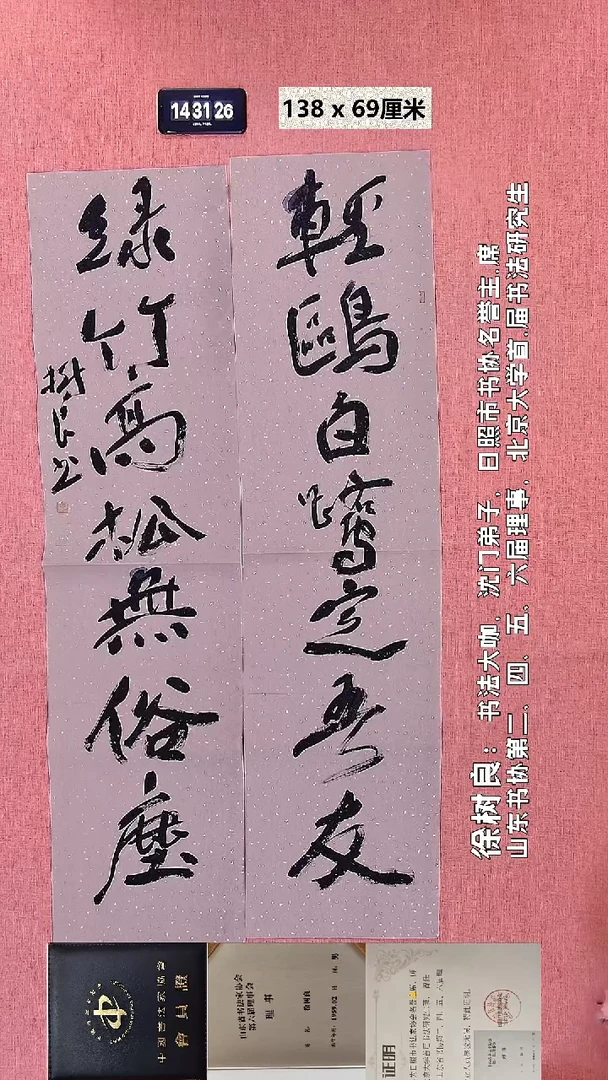 14 31 26
138 x 69厘米
輕鷗白鷺定吾友
綠竹高松無俗塵
树良书
徐树良：书法大咖，沈门弟子，日照市书协名誉主.席
山东书协第二、四、五、六届理事，北京大学首.届书法研究生
中國書法家協會
會員證
山东省书法家协会
第六届理事会
理事
证明